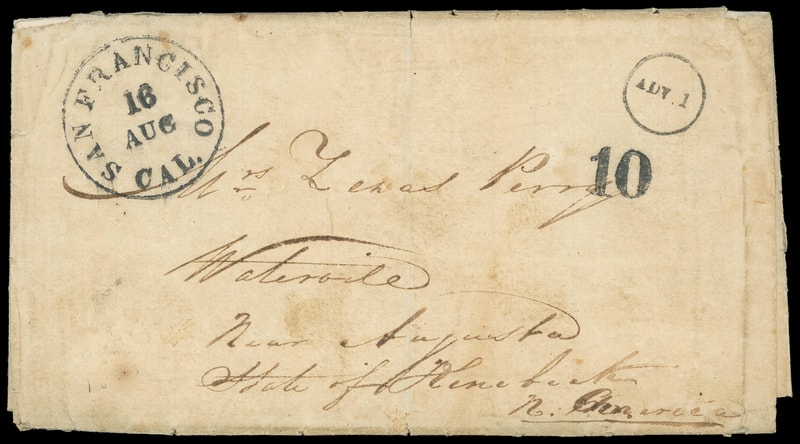 SAN FRANCISCO
16
AUG
CAL.
ADV. 1
10
Mrs Zenas Perry
Watervile
Near Augusta
State of Kenebeck
N. America